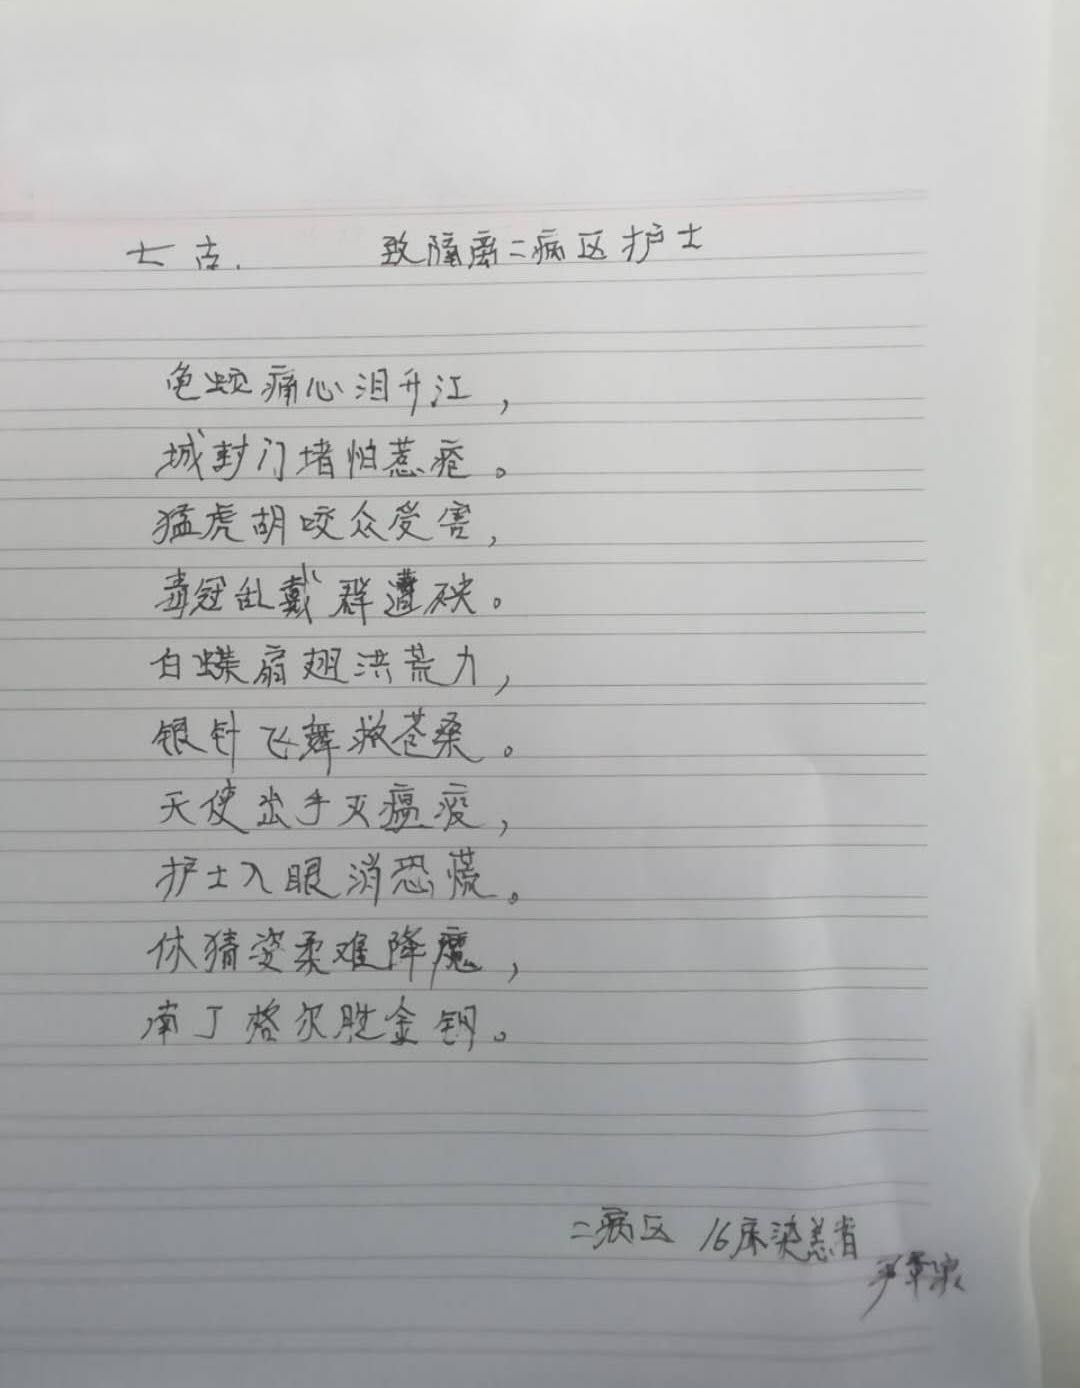 七古. 致隔离二病区护士
痛心泪升江,
城封门堵怕惹疮。
猛虎胡咬众受害,
毒冠乱戴群遭殃。
白蝶扇翅洪荒力,
银针飞舞救苍桑。
天使出手灭瘟疫,
护士入眼消恐慌。
休猜姿柔难降魔,
南丁格尔胜金钢。
二病区 16床染恙者